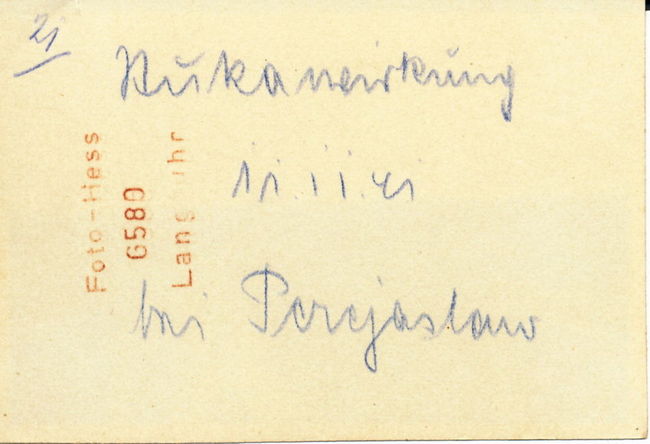 21
Stukawirkung
11.11.41
bei Perejaslaw
Foto-Hess
G580
Langfuhr